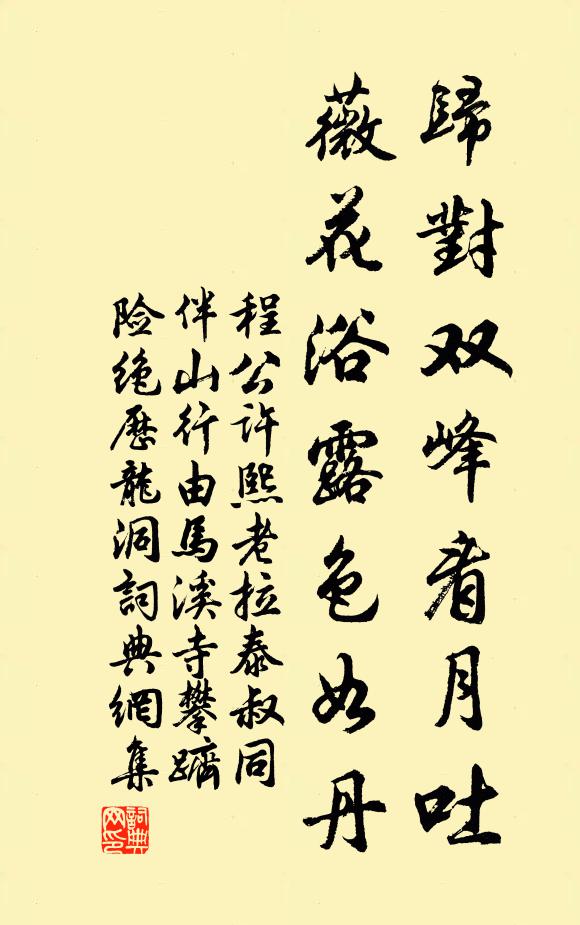 歸對双峰看月吐
薇花浴露色如丹
程公许熙老拉泰叔同
伴山行由馬溪寺攀躋
险绝歷龍洞詞典網集
詞典网印